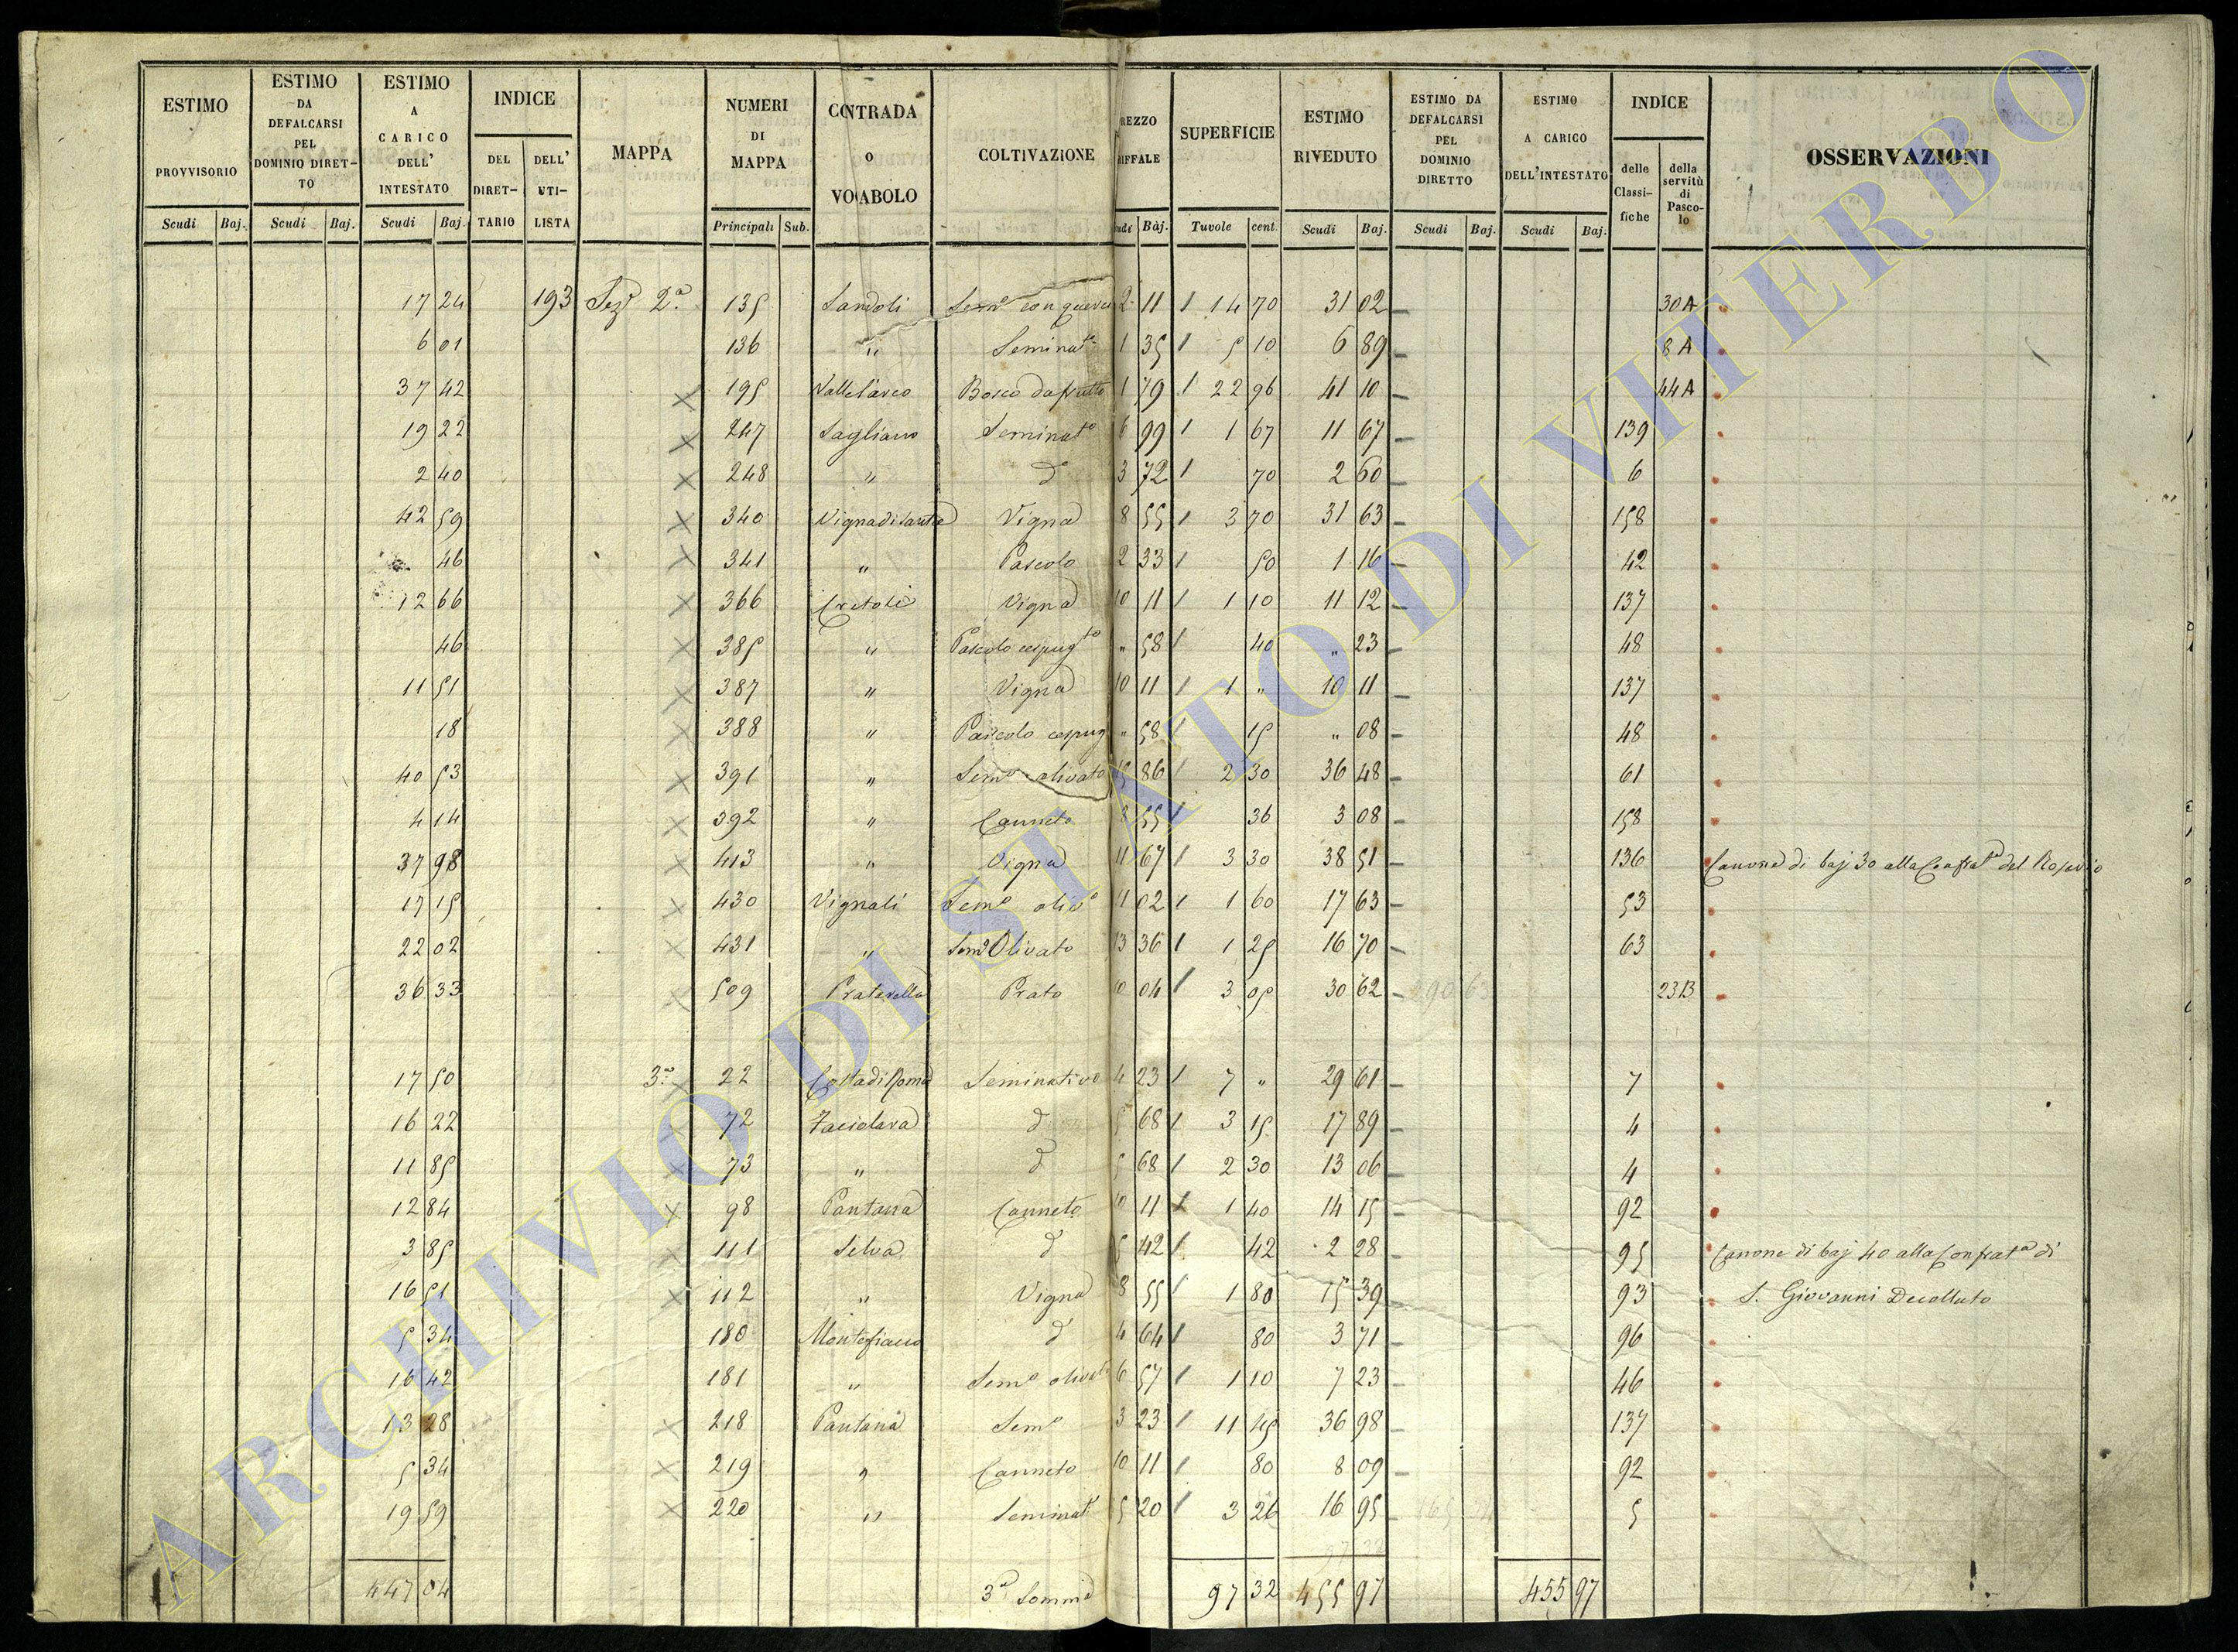 ESTIMO PROVVISORIO Scudi Baj.
ESTIMO DA DEFALCARSI PEL DOMINIO DIRET-TO Scudi Baj.
ESTIMO A CARICO DELL' INTESTATO Scudi Baj.
INDICE DEL DIRET-TARIO DELL' UTI-LISTA
MAPPA
NUMERI DI MAPPA Principali Sub.
CONTRADA O VOCABOLO
COLTIVAZIONE
SUPERFICIE Tavole cent.
ESTIMO RIVEDUTO Scudi Baj.
ESTIMO DA DEFALCARSI PEL DOMINIO DIRETTO Scudi Baj.
ESTIMO A CARICO DELL'INTESTATO Scudi Baj.
INDICE delle Classi-fiche della servitù di Pasco-lo
OSSERVAZIONI
17 24 193 Sez 2.a 135 Sandoli Sem.o con querce 2 11 14 70 31 02 30 A
6 01 136 " Seminat.o 1 35 5 10 6 89 8 A
37 42 195 Bosco da frutto 1 79 22 96 41 10 44 A
19 22 247 Sagliano Seminat.o 6 99 1 67 11 67 139
2 40 248 " d 3 72 70 2 60 6
42 59 340 Vigna 8 55 3 70 31 63 158
46 341 " Pascolo 2 33 50 1 16 42
12 66 366 Cretoli Vigna 10 11 1 10 11 12 137
46 385 " Pascolo cespug.to " 58 40 " 23 48
11 51 387 " Vigna 10 11 1 " 10 11 137
18 388 " Pascolo cespug " 58 15 " 08 48
40 53 391 " Sem.o olivato 15 86 2 30 36 48 61
4 14 392 " Canneto 8 55 36 3 08 158
37 98 413 " Vigna 11 67 3 30 38 51 136 Canone di baj 30 alla Confrat.a del Rosario
17 15 430 Vignali Sem.o oliv.o 11 02 1 60 17 63 53
22 02 431 " Sem.o Olivato 13 36 1 25 16 70 63
36 33 509 Pratarella Prato 10 04 3 05 30 62 23 B
17 50 3.a 22 Costa di Roma Seminativo 4 23 7 " 29 61 7
16 22 72 d 5 68 3 15 17 89 4
11 85 73 " d 5 68 2 30 13 06 4
12 84 98 Pantana Canneto 10 11 1 40 14 15 92
3 85 111 Selva d 5 42 42 2 28 95 Canone di baj 40 alla Confrat.a di
16 51 112 " Vigna 8 55 1 80 15 39 93 S. Giovanni Decollato
5 34 180 Montefiacco d 4 64 80 3 71 96
16 42 181 " Sem.o olivat 6 57 1 10 7 23 46
13 28 218 Pantana Sem.o 3 23 11 45 36 98 137
5 34 219 " Canneto 10 11 80 8 09 92
19 59 220 " Seminat 5 20 3 26 16 95 5
447 04 3.a Somma 97 32 455 97 455 97
ARCHIVIO DI STATO DI VITERBO